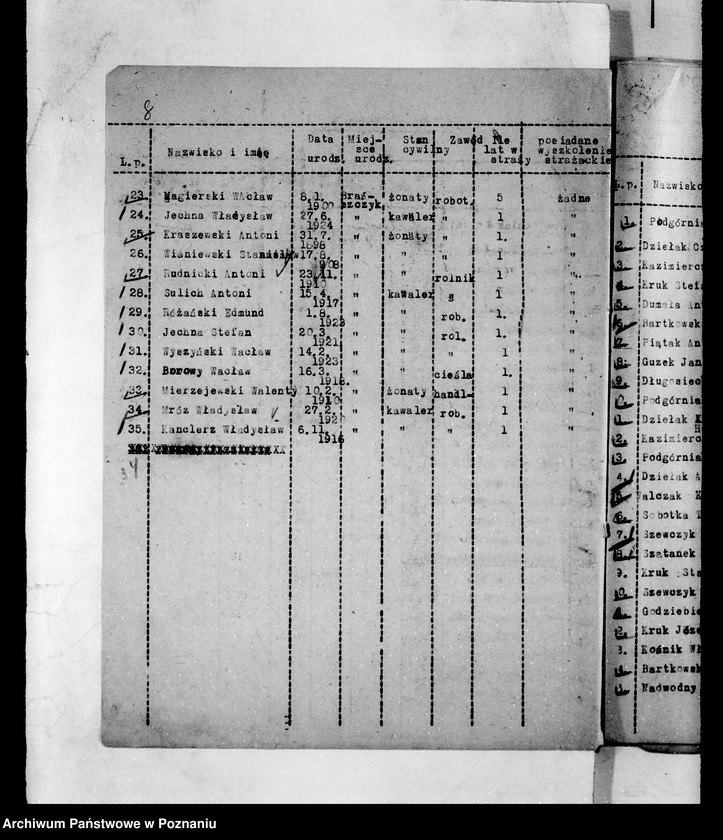 8
L.p. Nazwisko i imię Data urodz. Miejsce urodz. Stan cywilny Zawód Ile lat w straży posiadane wyszkolenie strażackie
23. Magierski Wacław 8.1. 1900 Brańszczyk żonaty robot. 5 żadne
24. Jechna Władysław 27.6. 1924 " kawaler " 1 "
25. Kraszewski Antoni 31.7. 1898 " żonaty " 1. "
26. Wiśniewski Stanisław 17.8. 908 " " " 1 "
27. Rudnicki Antoni 23.11. 1910 " " rolnik 1 "
28. Sulich Antoni 15.4. 1917 " kawaler 1 "
29. Różański Edmund 1.8. 1923 " " rob. 1. "
30. Jechna Stefan 20.3. 1921 " " rol. 1. "
31. Wyszyński Wacław 14.2. 1923 " " " 1 "
32. Borowy Wacław 16.3. " " cieśla 1. "
33. Mierzejewski Walenty 10.2. 1910 " żonaty handl- 1 "
34. Mróz Władysław 27.2. " kawaler rob. 1 "
35. Kanclerz Władysław 6.11. 1916 " " " 1 "
34
Nazwisko
1. Podgórnia
2. Dziełak
3. Kazimierc
Kruk Stef
5. Dumała
Bartkowsk
Piątak An
8. Guzek Jan
9. Długosiec
Podgórnia
Dziełak
2. Kazimierc
3. Podgórnia
4. Dziełak A
alczak
Sobotka
7. Szewczyk
8. Szatanek
9. Kruk Sta
0. Szewczyk
Godziebie
2. Kruk Józe
3. Kośnik Wł
Bartkowsk
Nadwodny
Archiwum Państwowe w Poznaniu